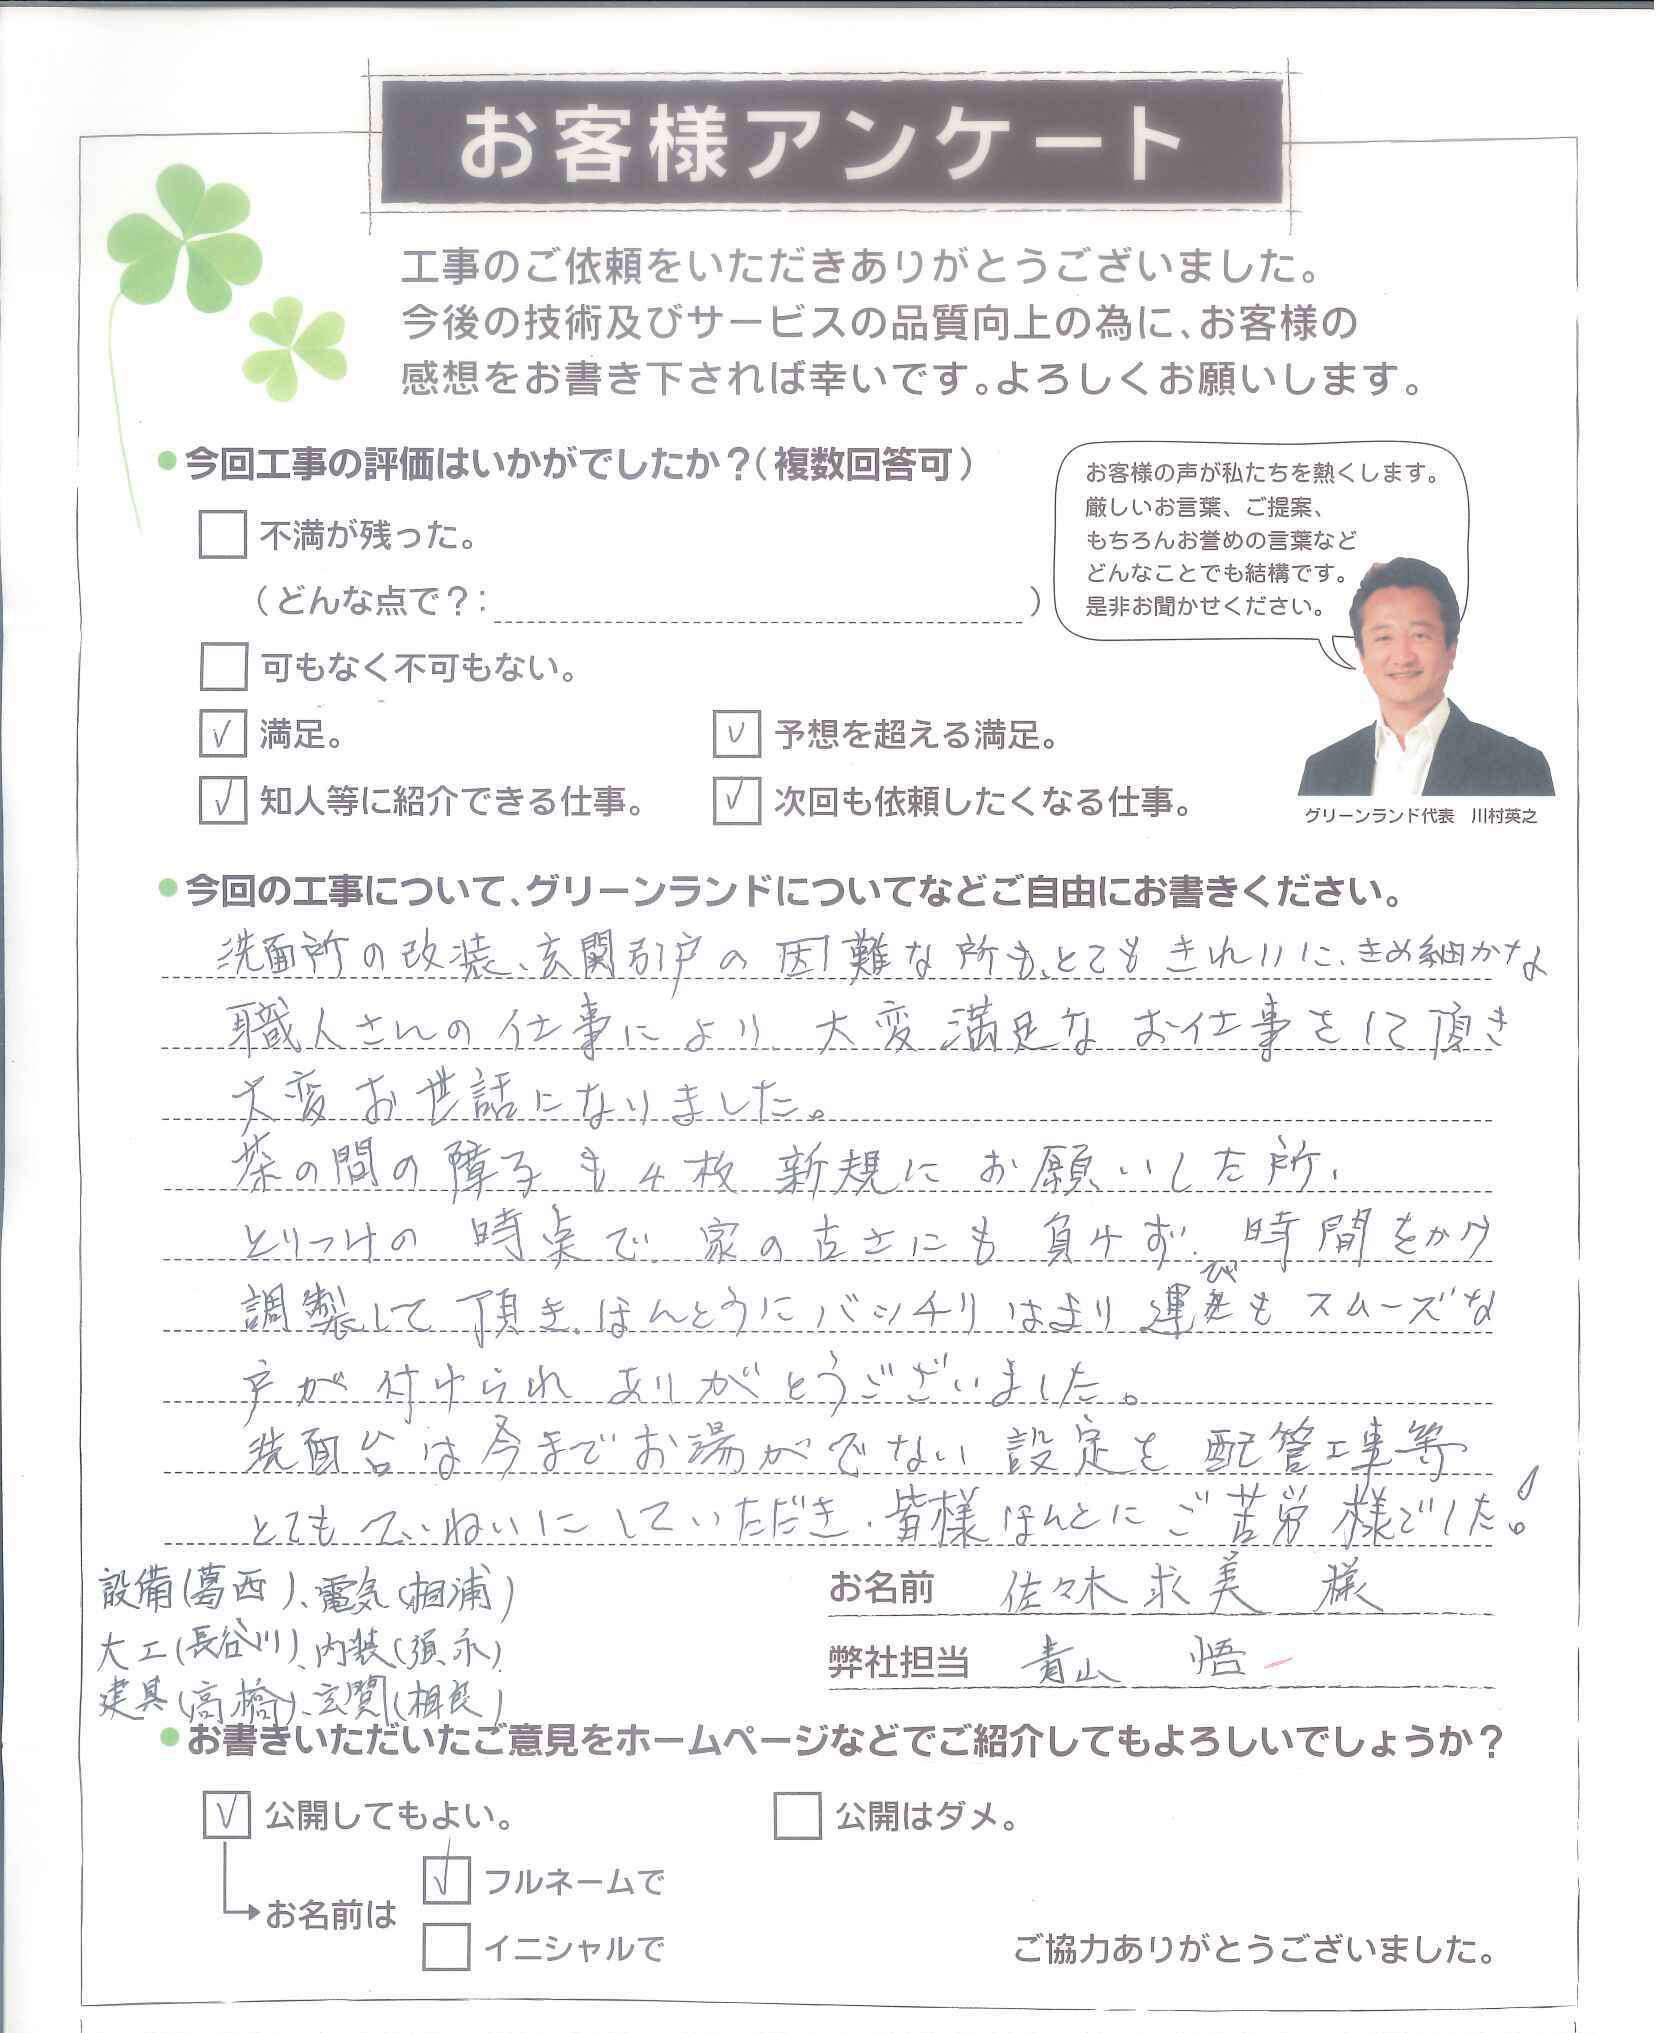 お客様アンケート
工事のご依頼をいただきありがとうございました。
今後の技術及びサービスの品質向上の為に、お客様の
感想をお書き下されば幸いです。よろしくお願いします。
今回工事の評価はいかがでしたか？（複数回答可）
不満が残った。
（どんな点で？：　）
可もなく不可もない。
✓ 満足。
✓ 予想を超える満足。
✓ 知人等に紹介できる仕事。
✓ 次回も依頼したくなる仕事。
お客様の声が私たちを熱くします。
厳しいお言葉、ご提案、
もちろんお誉めの言葉など
どんなことでも結構です。
是非お聞かせください。
グリーンランド代表　川村英之
今回の工事について、グリーンランドについてなどご自由にお書きください。
洗面所の改装、玄関引戸の困難な所も、とてもきれいに、きめ細かな
職人さんの仕事により、大変満足なお仕事をして頂き
大変お世話になりました。
茶の間の障子も4枚新規にお願いした所、
とりつけの時点で、家の古さにも負けず、時間をかけ
調製して頂き、ほんとうにバッチリはまり運びもスムーズな
戸が付けられありがとうございました。
洗面台は今までお湯がでない設定を配管工事等
とてもていねいにしていただき、皆様ほんとにご苦労様でした!。
設備(葛西)、電気(相浦)
大工(長谷川)、内装(須永)
建具(高橋)、玄関(相良)
お名前　佐々木求美 様
弊社担当　青山　悟
お書きいただいたご意見をホームページなどでご紹介してもよろしいでしょうか？
✓ 公開してもよい。
公開はダメ。
お名前は
✓ フルネームで
イニシャルで
ご協力ありがとうございました。